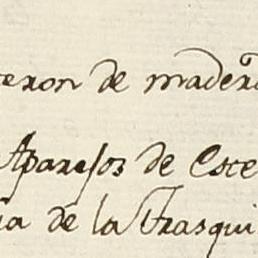 teron de madera
Aparejos de Este
ia de la Trasqui